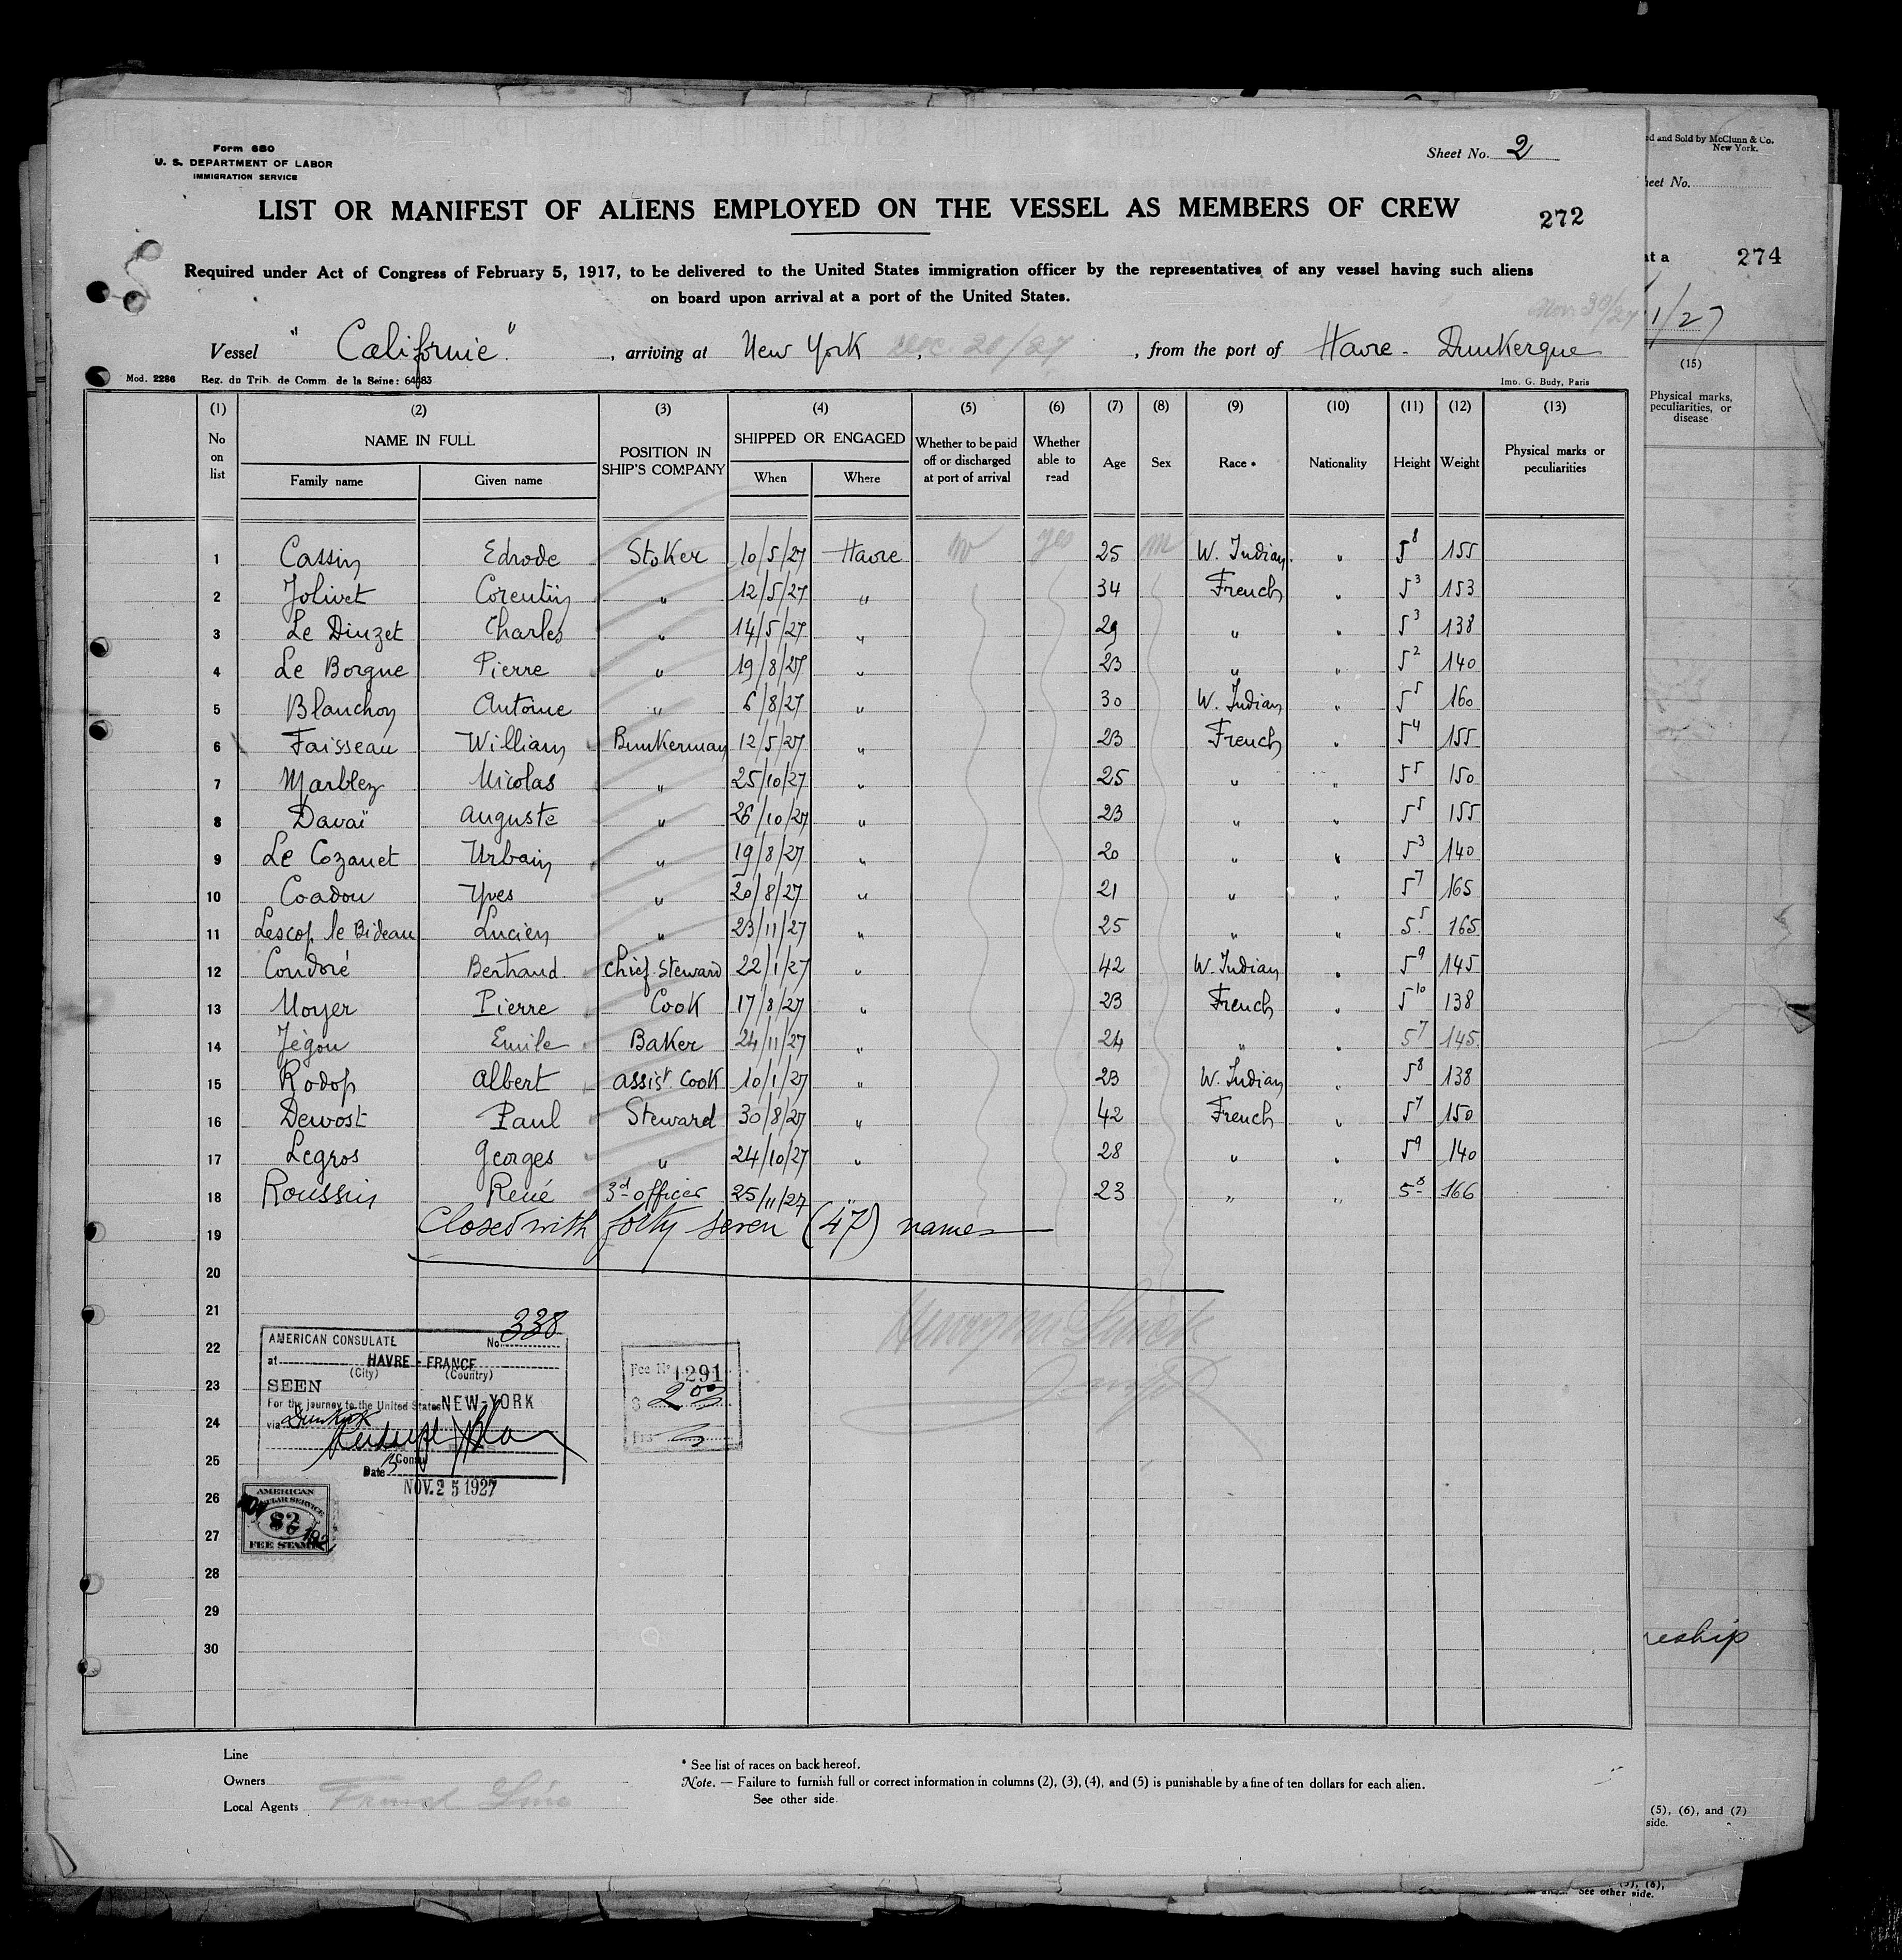 Form 680
U. S. DEPARTMENT OF LABOR
IMMIGRATION SERVICE
Sheet No. 2
LIST OR MANIFEST OF ALIENS EMPLOYED ON THE VESSEL AS MEMBERS OF CREW
272
Required under Act of Congress of February 5, 1917, to be delivered to the United States immigration officer by the representatives of any vessel having such aliens
on board upon arrival at a port of the United States.
Nov. 30/27
Vessel "Californie", arriving at New York Dec. 20/27, from the port of Havre - Dunkerque
Mod. 2286 Reg. du Trib. de Comm. de la Seine: 64483
Imp. G. Budy, Paris
(1) (2) (3) (4) (5) (6) (7) (8) (9) (10) (11) (12) (13)
No on list NAME IN FULL Family name Given name POSITION IN SHIP'S COMPANY SHIPPED OR ENGAGED When Where Whether to be paid off or discharged at port of arrival Whether able to read Age Sex Race * Nationality Height Weight Physical marks or peculiarities
1 Cassin Edrode Stoker 10/5/27 Havre No yes 25 M W. Indian " 5 8 155
2 Jolivet Corentin " 12/5/27 " 34 French " 5 3 153
3 Le Dinzet Charles " 14/5/27 " 29 " " 5 3 138
4 Le Borgne Pierre " 19/8/27 " 23 " " 5 2 140
5 Blanchon Antoine " 6/8/27 " 30 W. Indian " 5 5 160
6 Faisseau William Bunkerman 12/5/27 " 23 French " 5 4 155
7 Marblez Nicolas " 25/10/27 " 25 " " 5 5 150
8 Davaï Auguste " 26/10/27 " 23 " " 5 5 155
9 Le Cozanet Urbain " 19/8/27 " 20 " " 5 3 140
10 Coadou Yves " 20/8/27 " 21 " " 5 7 165
11 Lescop le Bideau Lucien " 23/11/27 " 25 " " 5 5 165
12 Condoré Bertrand Chief Steward 22/1/27 " 42 W. Indian " 5 9 145
13 Moyer Pierre Cook 17/8/27 " 23 French " 5 10 138
14 Jégou Emile Baker 24/11/27 " 24 " " 5 7 145
15 Rodop Albert assist Cook 10/1/27 " 23 W. Indian " 5 8 138
16 Dewost Paul Steward 30/8/27 " 42 French " 5 7 150
17 Legros Georges " 24/10/27 " 28 " " 5 9 140
18 Roussin René 3d officer 25/11/27 " 23 " " 5 8 166
19 Closed with forty seven (47) names
20
21
22
23
24
25
26
27
28
29
30
AMERICAN CONSULATE No. 338
at HAVRE - FRANCE
(City) (Country)
SEEN
For the journey to the United States NEW-YORK
via Dunkirk
Consul
Date NOV. 25 1927
Fee No 1291
$ 2.00
Frs
AMERICAN
CONSULAR SERVICE
$2
FEE STAMP
Line
Owners
Local Agents French Line
* See list of races on back hereof.
Note. — Failure to furnish full or correct information in columns (2), (3), (4), and (5) is punishable by a fine of ten dollars for each alien.
See other side.
ed and Sold by McClunn & Co.
New York.
heet No.
at a 274
1/27
(15)
Physical marks,
peculiarities, or
disease
reship
(5), (6), and (7)
side.
See other side.